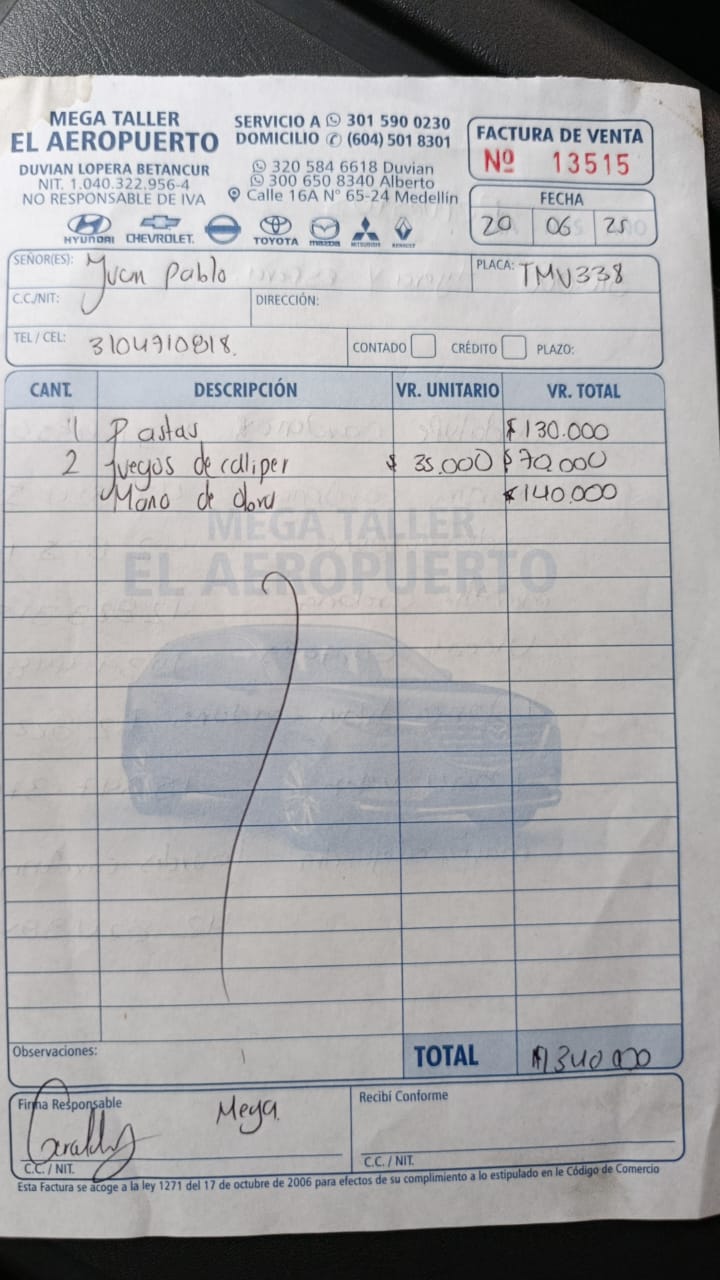 MEGA TALLER
EL AEROPUERTO
DUVIAN LOPERA BETANCUR
NIT. 1.040.322.956-4
NO RESPONSABLE DE IVA
SERVICIO A 301 590 0230
DOMICILIO (604) 501 8301
320 584 6618 Duvian
300 650 8340 Alberto
Calle 16A N° 65-24 Medellín
HYUNDAI CHEVROLET TOYOTA mazda MITSUBISHI RENAULT
FACTURA DE VENTA
Nº 13515
FECHA
20 06 25
SEÑOR(ES): Juan Pablo PLACA: TMV338
C.C./NIT: DIRECCIÓN:
TEL / CEL: 3104910818. CONTADO CRÉDITO PLAZO:
CANT. DESCRIPCIÓN VR. UNITARIO VR. TOTAL
1 Pastas $130.000
2 Juegos de caliper $ 35.000 $70.000
Mano de obra $140.000
MEGA TALLER
EL AEROPUERTO
Observaciones: TOTAL $340.000
Firma Responsable Mega. Recibí Conforme
C.C. / NIT. C.C. / NIT.
Esta Factura se acoge a la ley 1271 del 17 de octubre de 2006 para efectos de su cumplimiento a lo estipulado en le Código de Comercio